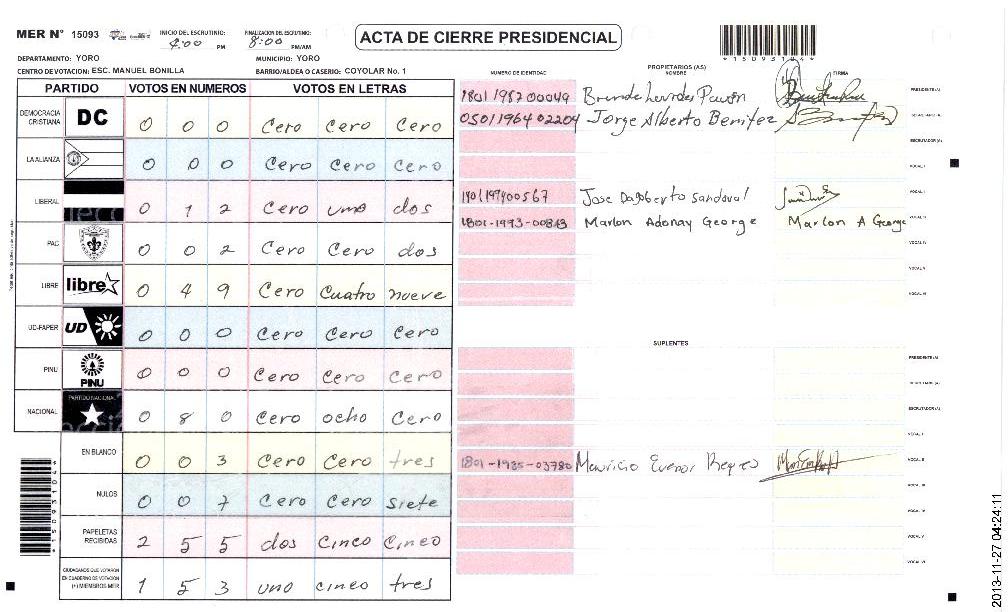 MER N° 15093 INICIO DEL ESCRUTINIO: 4:00 PM FINALIZACION DEL ESCRUTINIO: 8:00 PM/AM
ACTA DE CIERRE PRESIDENCIAL
*15093104*
DEPARTAMENTO: YORO MUNICIPIO: YORO
CENTRO DE VOTACION: ESC. MANUEL BONILLA BARRIO/ALDEA O CASERIO: COYOLAR No. 1
PARTIDO VOTOS EN NUMEROS VOTOS EN LETRAS
DEMOCRACIA CRISTIANA DC 0 0 0 Cero Cero Cero
LA ALIANZA 0 0 0 Cero Cero Cero
LIBERAL 0 1 2 Cero uno dos
PAC 0 0 2 Cero Cero dos
LIBRE libre 0 4 9 Cero Cuatro nueve
UD-FAPER UD 0 0 0 Cero Cero Cero
PINU PINU 0 0 0 Cero Cero Cero
NACIONAL PARTIDO NACIONAL 0 8 0 Cero ocho Cero
EN BLANCO 0 0 3 Cero Cero tres
NULOS 0 0 7 Cero Cero siete
PAPELETAS RECIBIDAS 2 5 5 dos Cinco Cinco
CIUDADANOS QUE VOTARON EN CUADERNO DE VOTACION (+) MIEMBROS MER 1 5 3 uno cinco tres
PROPIETARIOS (AS)
NUMERO DE IDENTIDAD NOMBRE FIRMA
1801 1987 00049 Brenda Lourdes Pavón PRESIDENTE (A)
0501 1964 02204 Jorge Alberto Benitez SECRETARIO (A)
ESCRUTADOR (A)
VOCAL I
1801199400567 Jose Dagoberto Sandoval VOCAL II
Marlon Adonay George Marlon A George VOCAL III
VOCAL IV
VOCAL V
VOCAL VI
SUPLENTES
PRESIDENTE (A)
SECRETARIO (A)
ESCRUTADOR (A)
VOCAL I
1801-1985-03780 Mauricio Reyes VOCAL II
VOCAL III
VOCAL IV
VOCAL V
VOCAL VI
2013-11-27 04:24:11